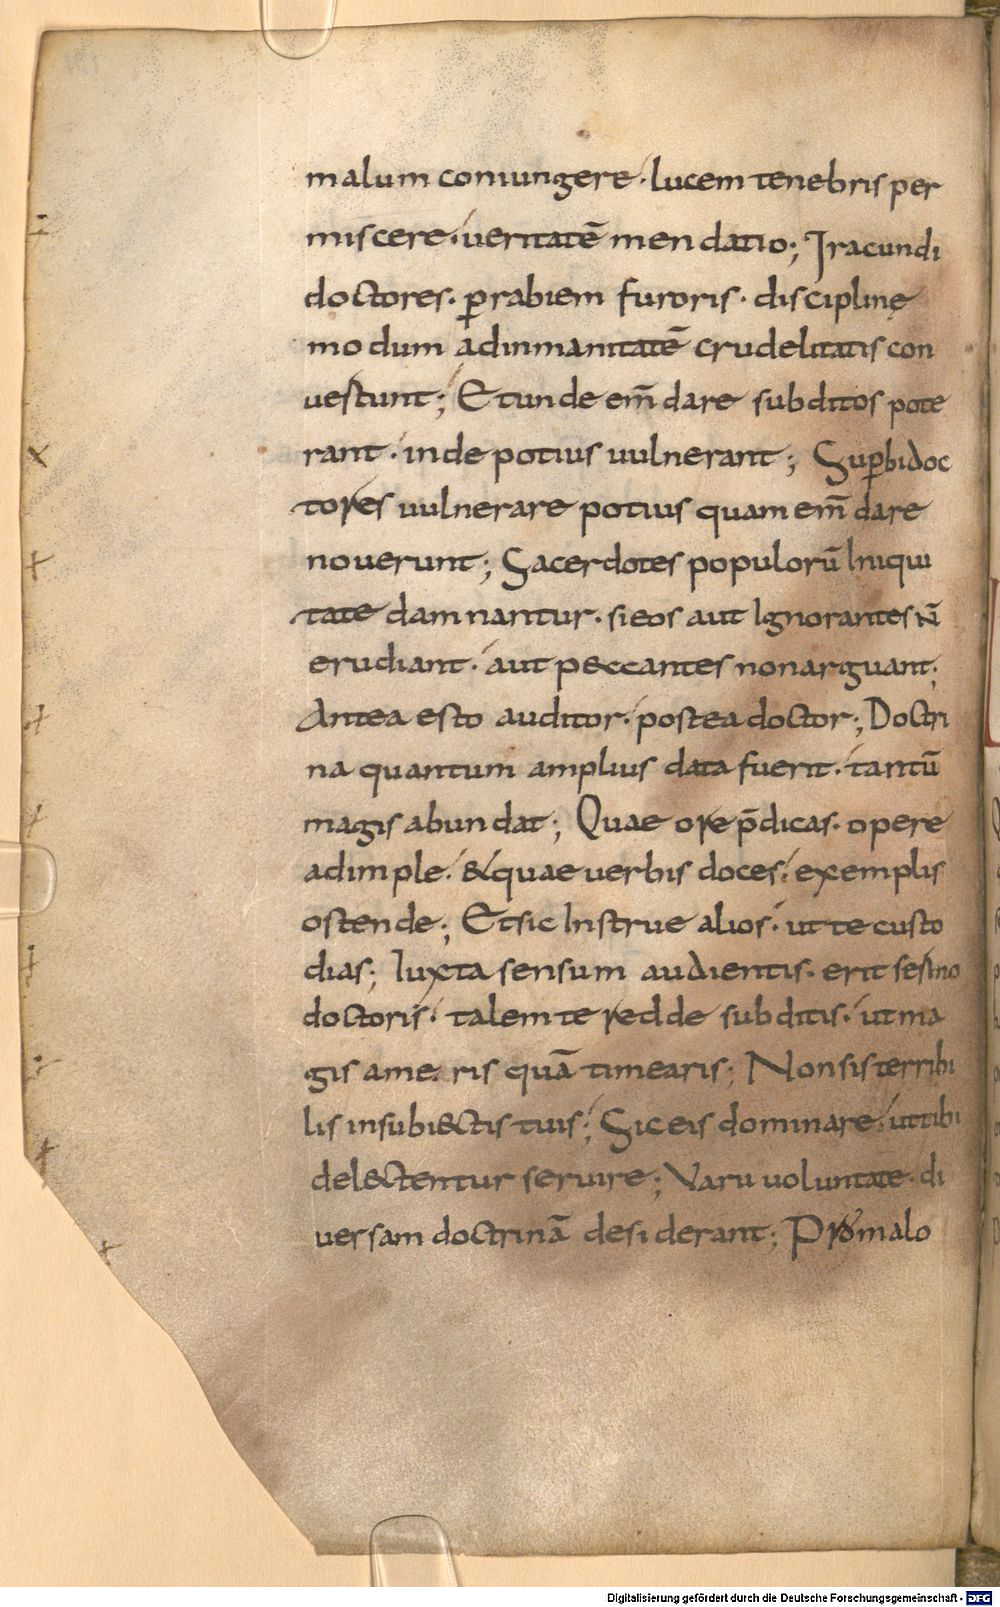 malum coniungere · lucem tenebris per
miscere · ueritatē mendatio; Iracundi
doctores · ꝑ rabiem furoris · disciplinę
modum ad inmanitatē crudelitatis con
uestunt; Et unde em̄dare subditos pote
rant · inde potius uulnerant; Suꝑbi doc
tores uulnerare potius quam em̄dare
nouerunt; Sacerdotes populorū Iniqui
tate damnantur · si eos aut Ignorantes n̄
erudiant · aut peccantes non arguant;
Antea esto auditor · postea doctor; Doctri
na quantum amplius data fuerit · tantū
magis abundat; Quae ore p̄dicas · opere
adimple · & quae uerbis doces · exemplis
ostende; Et sic Instrue alios · ut te custo
dias; Iuxta sensum audientis · erit sermo
doctoris · talem te redde subditis · ut ma
gis ameris quā timearis; Non sis terribi
lis in subi&ctis tuis; Sic eis dominare · ut tibi
del&ctentur seruire; Varii uoluntate · di
uersam doctrinā desiderant; Pro malo
Digitalisierung gefördert durch die Deutsche Forschungsgemeinschaft - DFG